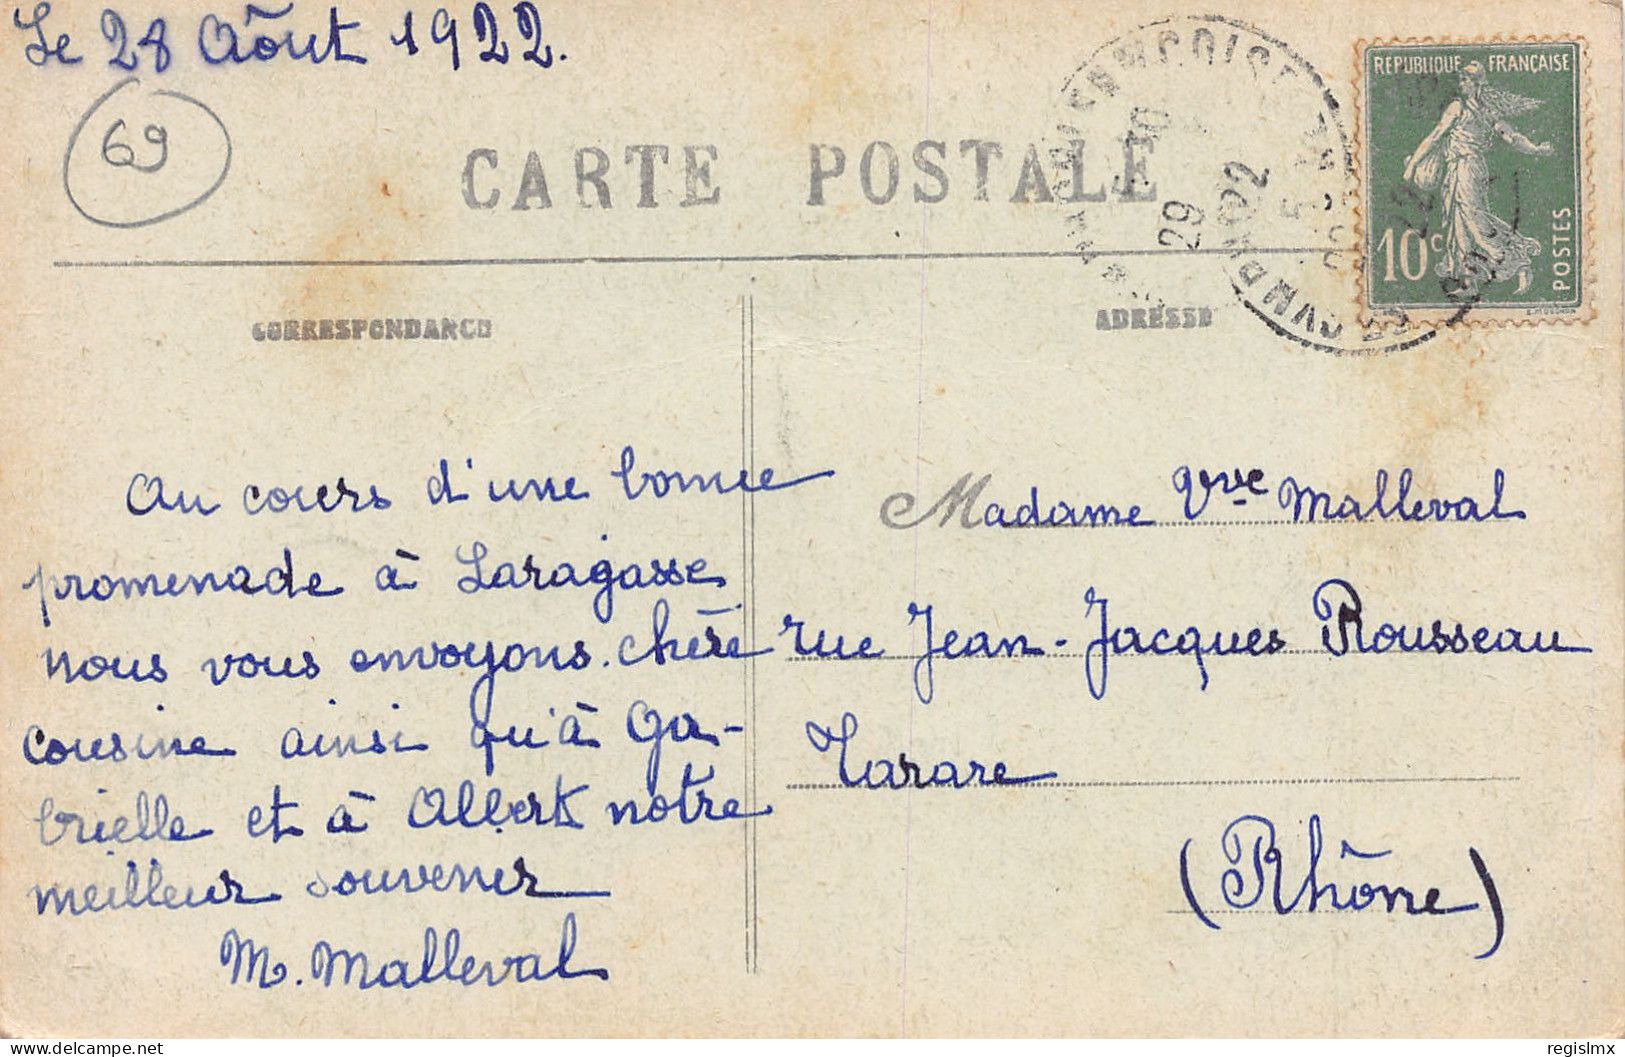 Le 28 Aôut 1922.
69
CARTE POSTALE
REPUBLIQUE FRANÇAISE
10c
POSTES
29
22
CORRESPONDANCE
ADRESSE
Au cours d'une bonne
promenade à Laragasse
nous vous envoyons. chère
cousine ainsi qu'à Ga-
brielle et à Albert notre
meilleur souvenir
M. Malleval
Madame Vve Malleval
rue Jean-Jacques Rousseau
Tarare
(Rhône)
delcampe.net
regislmx